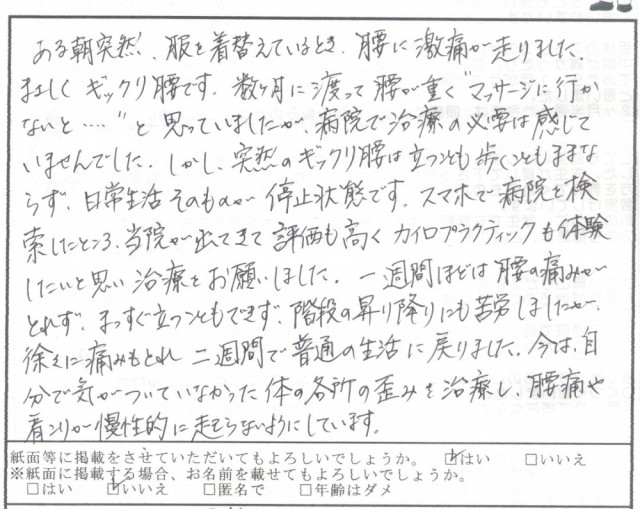 ある朝突然、服を着替えているとき、腰に激痛が走りました。
まさしくギックリ腰です。数ヶ月に渡って腰が重く"マッサージに行か
ないと……"と思っていましたが、病院で治療の必要は感じて
いませんでした。しかし、突然のギックリ腰は立つことも歩くこともままな
らず、日常生活そのものが停止状態です。スマホで病院を検
索したところ、当院が出てきて評価も高くカイロプラクティックも体験
したいと思い治療をお願いしました。一週間ほどは腰の痛みが
とれず、まっすぐ立つこともできず、階段の昇り降りにも苦労しましたが、
徐々に痛みもとれ二週間で普通の生活に戻りました。今は、自
分で気がついていなかった体の各所の歪みを治療し、腰痛や
肩こりが慢性的に走らないようにしています。
紙面等に掲載をさせていただいてもよろしいでしょうか。 ☑はい □いいえ
※紙面に掲載する場合、お名前を載せてもよろしいでしょうか。
□はい ☑いいえ □匿名で □年齢はダメ